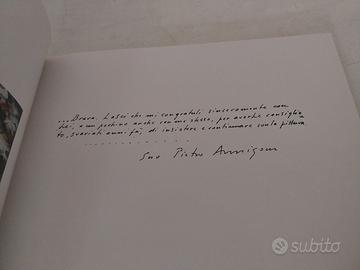 ...Brava. Lasci che mi congratuli sinceramente con
Lei, e un pochino anche con me stesso, per averLe consiglia-
to, svariati anni fa, di insistere e continuare con la pittura
. . . . . . . . . . . .
Suo Pietro Annigoni
subito